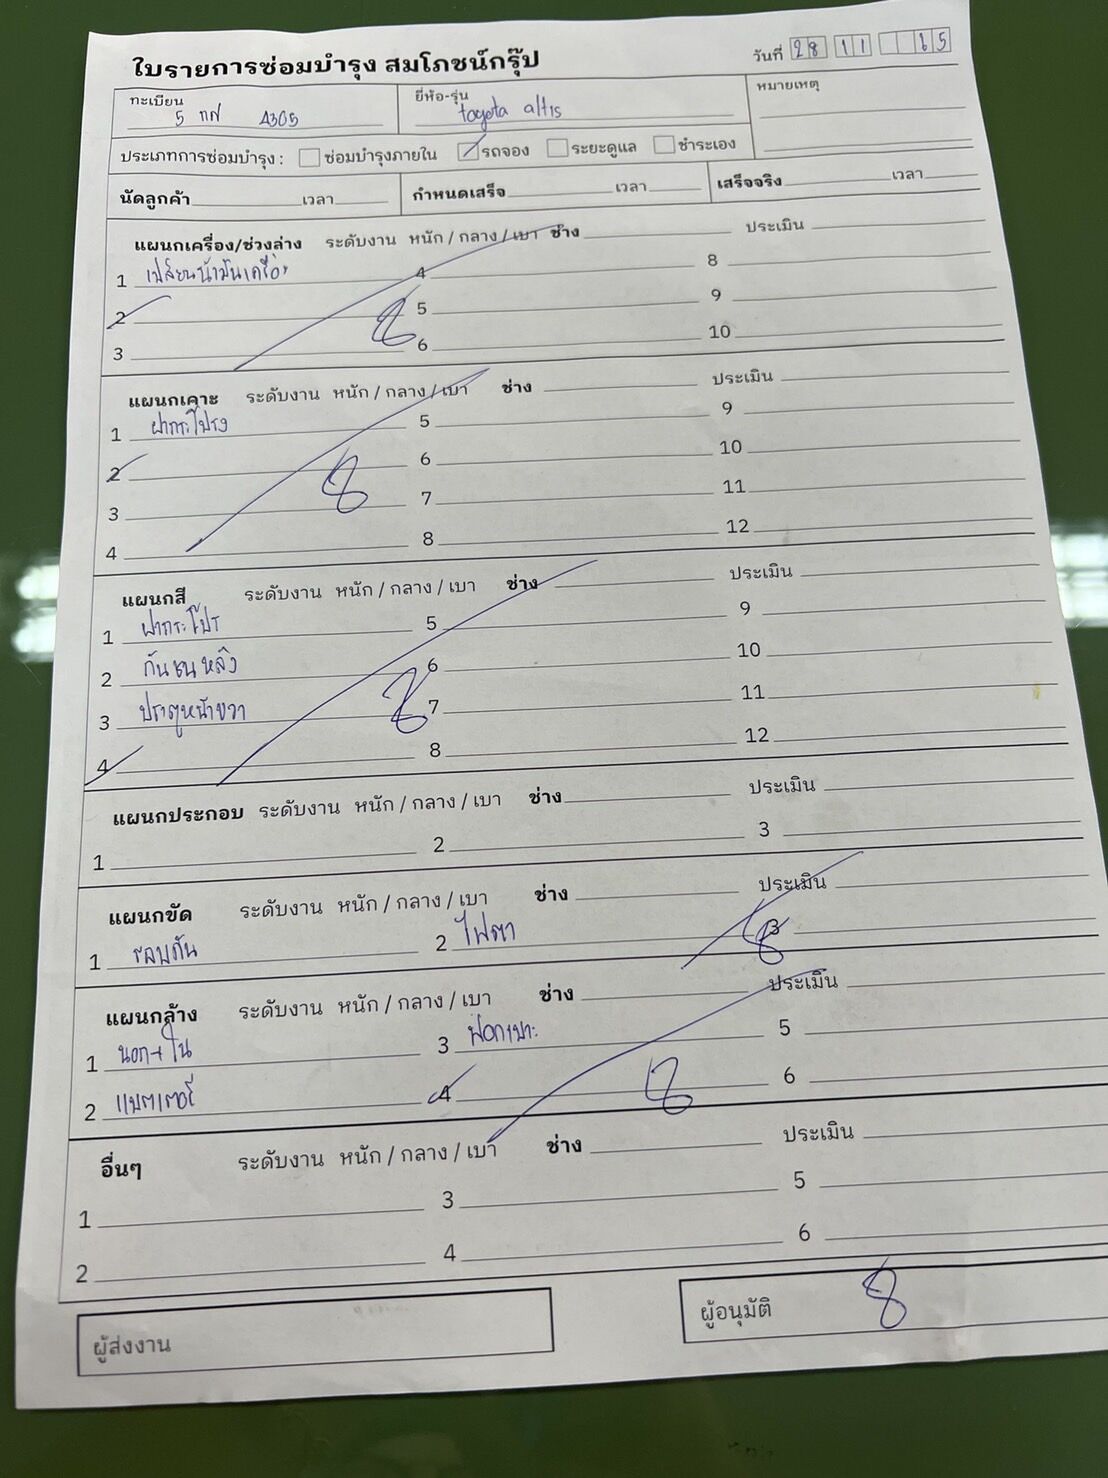 ใบรายการซ่อมบำรุง สมโภชน์กรุ๊ป
วันที่ 28 11 65
ทะเบียน
ยี่ห้อ-รุ่น
หมายเหตุ
4305
toyota altis
ประเภทการซ่อมบำรุง : ซ่อมบำรุงภายใน รถจอง ระยะดูแล ชำระเอง
นัดลูกค้า เวลา กำหนดเสร็จ เวลา เสร็จจริง เวลา
แผนกเครื่อง/ช่วงล่าง ระดับงาน หนัก / กลาง / เบา ช่าง ประเมิน
1 เปลี่ยนน้ำมันเครื่อง 4 8
2 5 9
3 6 10
แผนกเคาะ ระดับงาน หนัก / กลาง / เบา ช่าง ประเมิน
1 ฝากระโปรง 5 9
2 6 10
3 7 11
4 8 12
แผนกสี ระดับงาน หนัก / กลาง / เบา ช่าง ประเมิน
1 ฝากระโปร 5 9
2 กันชนหลัง 6 10
3 ประตูหน้าขวา 7 11
4 8 12
แผนกประกอบ ระดับงาน หนัก / กลาง / เบา ช่าง ประเมิน
1 2 3
แผนกขัด ระดับงาน หนัก / กลาง / เบา ช่าง ประเมิน
1 รอบคัน 2 ไฟตา 3
แผนกล้าง ระดับงาน หนัก / กลาง / เบา ช่าง ประเมิน
1 นอก+ใน 3 ฟอกเบาะ 5
2 แบตเตอรี่ 4 6
อื่นๆ ระดับงาน หนัก / กลาง / เบา ช่าง ประเมิน
1 3 5
2 4 6
ผู้ส่งงาน
ผู้อนุมัติ